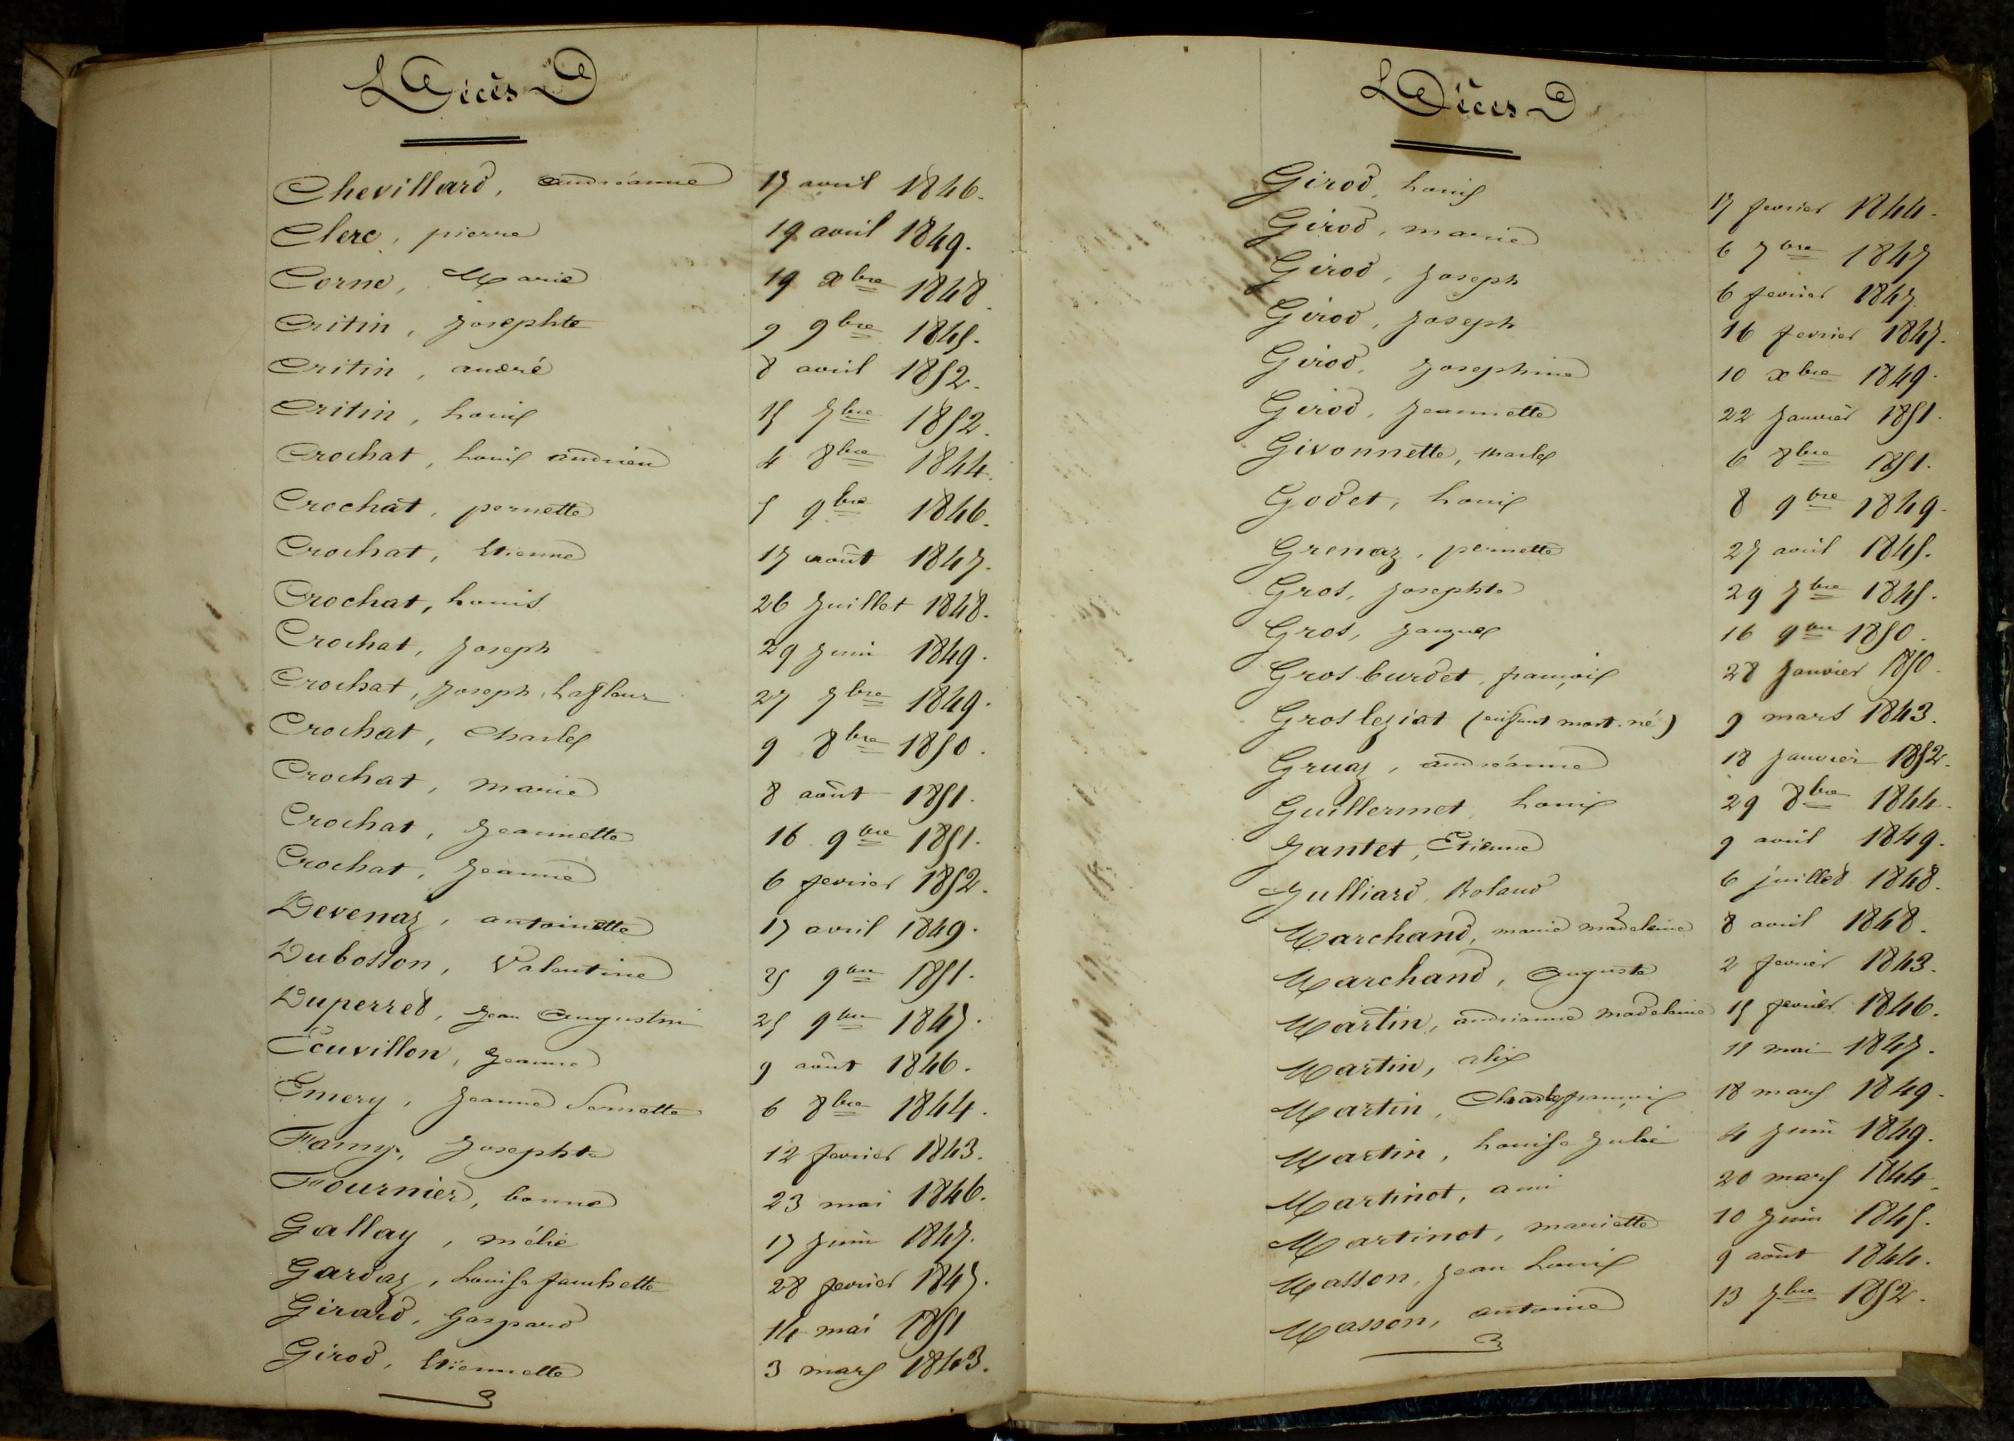 Décès
Chevillard, andréanne 17 avril 1846.
Clerc, pierre 19 avril 1849.
Corne, Marie 19 xbre 1848
Critin, Josephte 9 9bre 1845.
Critin, andré 8 avril 1852.
Critin, Louis 15 7bre 1852.
Crochat, Louis andrien 4 8bre 1844.
Crochat, pernette 5 9bre 1846.
Crochat, Etienne 17 août 1847.
Crochat, Louis 26 Juillet 1848.
Crochat, Joseph 29 Juin 1849.
Crochat, Joseph, Lafleur 27 7bre 1849.
Crochat, Charles 9 8bre 1850.
Crochat, marie 8 août 1851.
Crochat, Jeannette 16 9bre 1851.
Crochat, Jeanne 6 fevrier 1852.
Devenaz, antoinette 17 avril 1849.
Dubosson, Valentine 25 9bre 1851.
Duperret, Jean Augustin 25 9bre 1847.
Ecuvillon, Jeanne 9 août 1846.
Emery, Jeanne Pernette 6 8bre 1844.
Famy, Josephte 12 fevrier 1843.
Fournier, bonne 23 mai 1846.
Gallay, mélie 17 Juin 1847.
Gardaz, Louise Franchette 28 fevrier 1847.
Girard, Gaspard 14 mai 1851
Girod, Etiennette 3 mars 1843.
Décès
Girod, Louis 17 fevrier 1844.
Girod, marie 6 7bre 1847
Girod, Joseph 6 fevrier 1847.
Girod, Joseph 16 fevrier 1847.
Girod, Josephine 10 xbre 1849.
Girod, Jeannette 22 Janvier 1851.
Givonnette, marles 6 8bre 1851.
Godet, Louis 8 9bre 1849.
Grenaz, pernette 27 avril 1845.
Gros, Josephte 29 7bre 1845.
Gros, Jacques 16 9bre 1850.
Gros burdet, françois 28 Janvier 1850.
Gros leziat (enfant mort-né) 9 mars 1843.
Gruaz, andréanne 18 Janvier 1852.
Guillermet Louis 29 8bre 1844.
Jantet, Etienne 9 avril 1849.
Julliard, Roland 6 juillet 1848.
Marchand, marie madelaine 8 avril 1848.
Marchand, Auguste 2 fevrier 1843.
Martin, andrianne madelaine 15 fevrier 1846.
Martin, alix 11 mai 1847.
Martin, Charles françois 18 mars 1849.
Martin, Louise Julie 4 Juin 1849.
Martinot, ami 20 mars 1844.
Martinot, mariette 10 Juin 1845.
Masson, Jean Louis 9 août 1844.
Masson, antoine 13 7bre 1852.